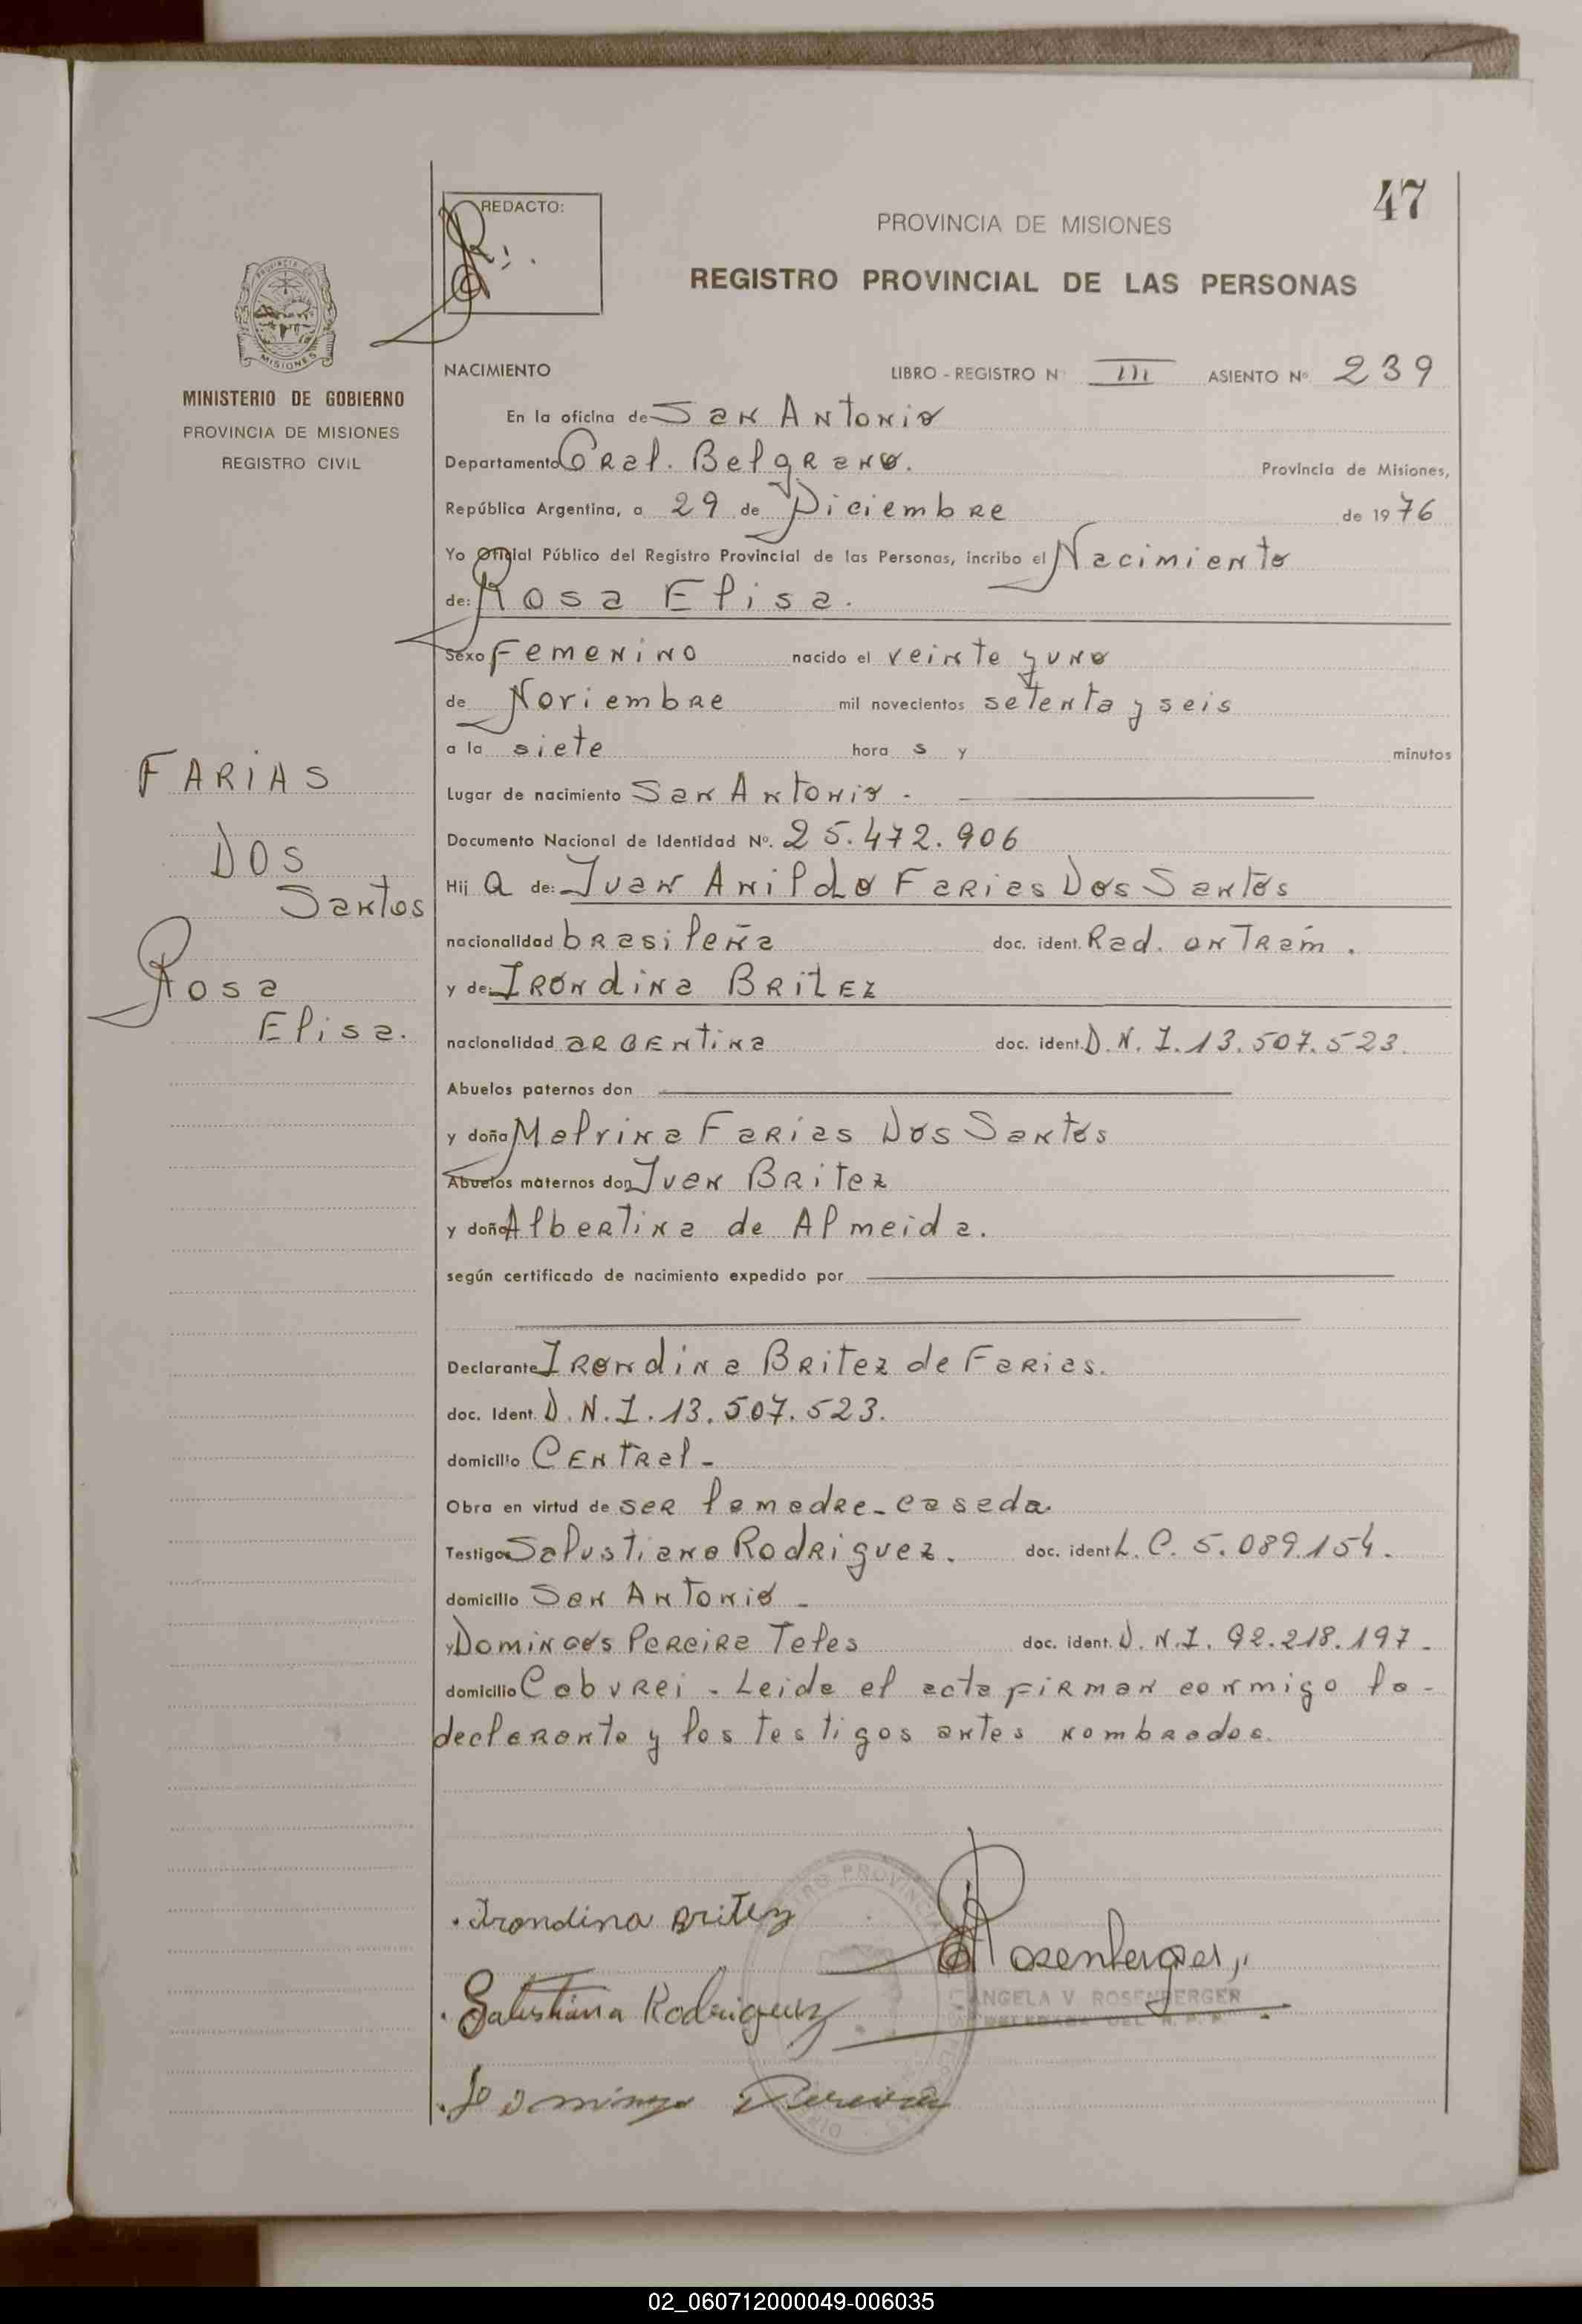 47
REDACTO:
PROVINCIA DE MISIONES
REGISTRO PROVINCIAL DE LAS PERSONAS
MISIONES
MINISTERIO DE GOBIERNO
PROVINCIA DE MISIONES
REGISTRO CIVIL
NACIMIENTO LIBRO - REGISTRO N III ASIENTO Nº 239
En la oficina de San Antonio
Departamento Gral. Belgrano. Provincia de Misiones,
República Argentina, a 29 de Diciembre de 1976
Yo Oficial Público del Registro Provincial de las Personas, incribo el Nacimiento
de: Rosa Elisa.
Sexo Femenino nacido el veinte y uno
de Noviembre mil novecientos setenta y seis
a la siete hora s y minutos
Lugar de nacimiento San Antonio -
Documento Nacional de Identidad Nº. 25.472.906
Hij a de: Juan Anildo Farias Dos Santos
nacionalidad brasileña doc. ident. Rad. en Trám.
y de: Irondina Britez
nacionalidad argentina doc. ident. D.N.I. 13.507.523.
Abuelos paternos don
y doña Malvina Farias Dos Santos
Abuelos maternos don Juan Britez
y doña Albertina de Almeida.
según certificado de nacimiento expedido por
Declarante Irondina Britez de Farias.
doc. Ident. D.N.I. 13.507.523.
domicilio Central -
Obra en virtud de ser la madre - casada
Testigos Salustiana Rodriguez. doc. ident L.C. 5.089.154.
domicilio San Antonio -
y Domingos Pereira Teles doc. ident. D.N.I. 92.218.197 -
domicilio Caburei - Leida el acta firman conmigo la -
declarante y los testigos antes nombrados.
FARIAS
DOS
Santos
Rosa
Elisa.
Irondina Britez
Rosenberger
ANGELA V. ROSENBERGER
Salustiana Rodriguez
Domingo Pereira
02_060712000049-006035